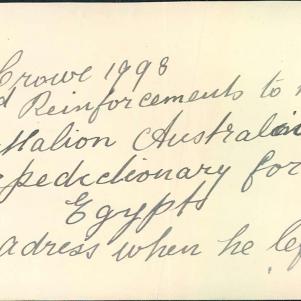 Crowe 1998
d Reinforcements to
ttalion Australain
pedictionary for
Egypt
adress when he lef